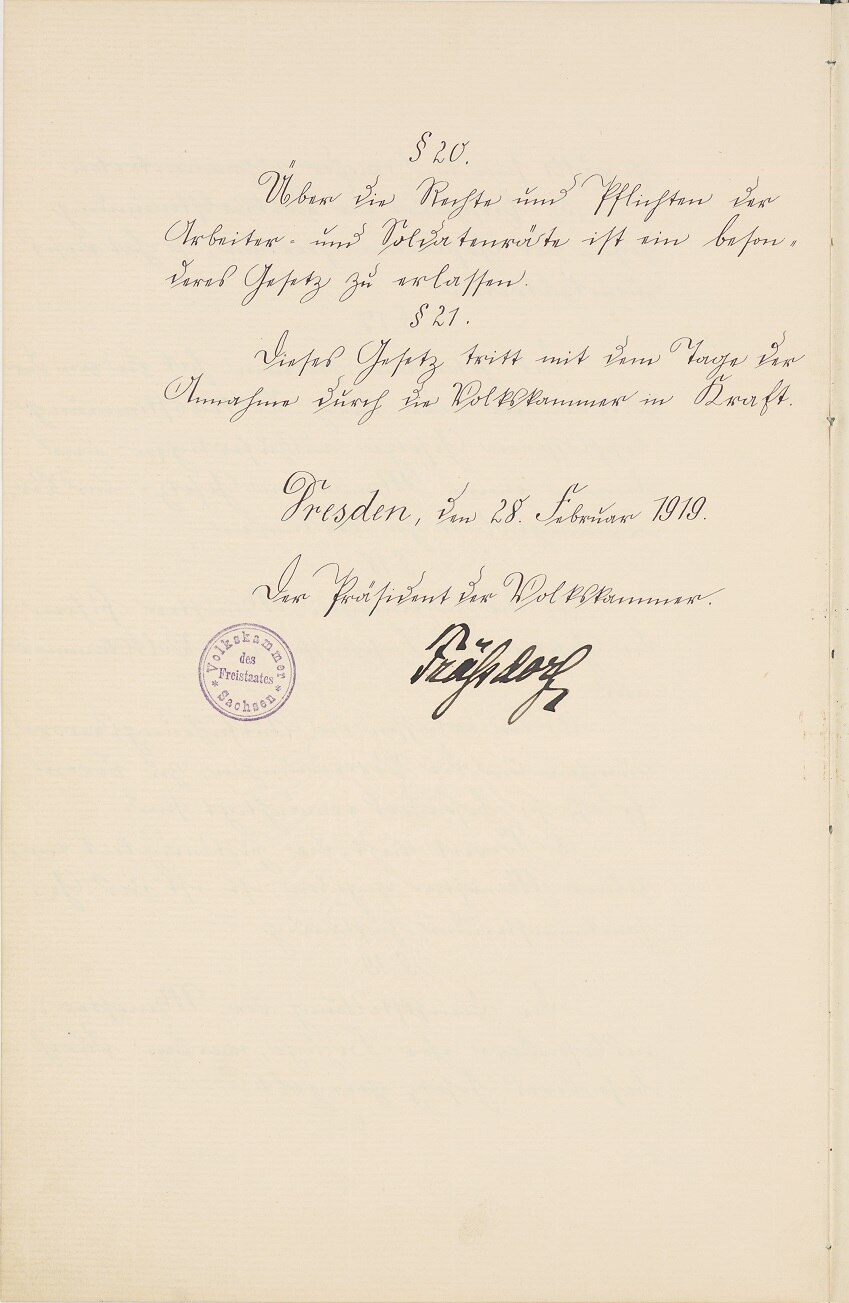 § 20.
Über die Rechte und Pflichten der
Arbeiter- und Soldatenräte ist ein beson-
deres Gesetz zu erlassen.
§ 21.
Dieses Gesetz tritt mit dem Tage der
Annahme durch die Volkskammer in Kraft.
Dresden, den 28. Februar 1919.
Der Präsident der Volkskammer.
Fräßdorf
Volkskammer
des
Freistaates
* Sachsen *